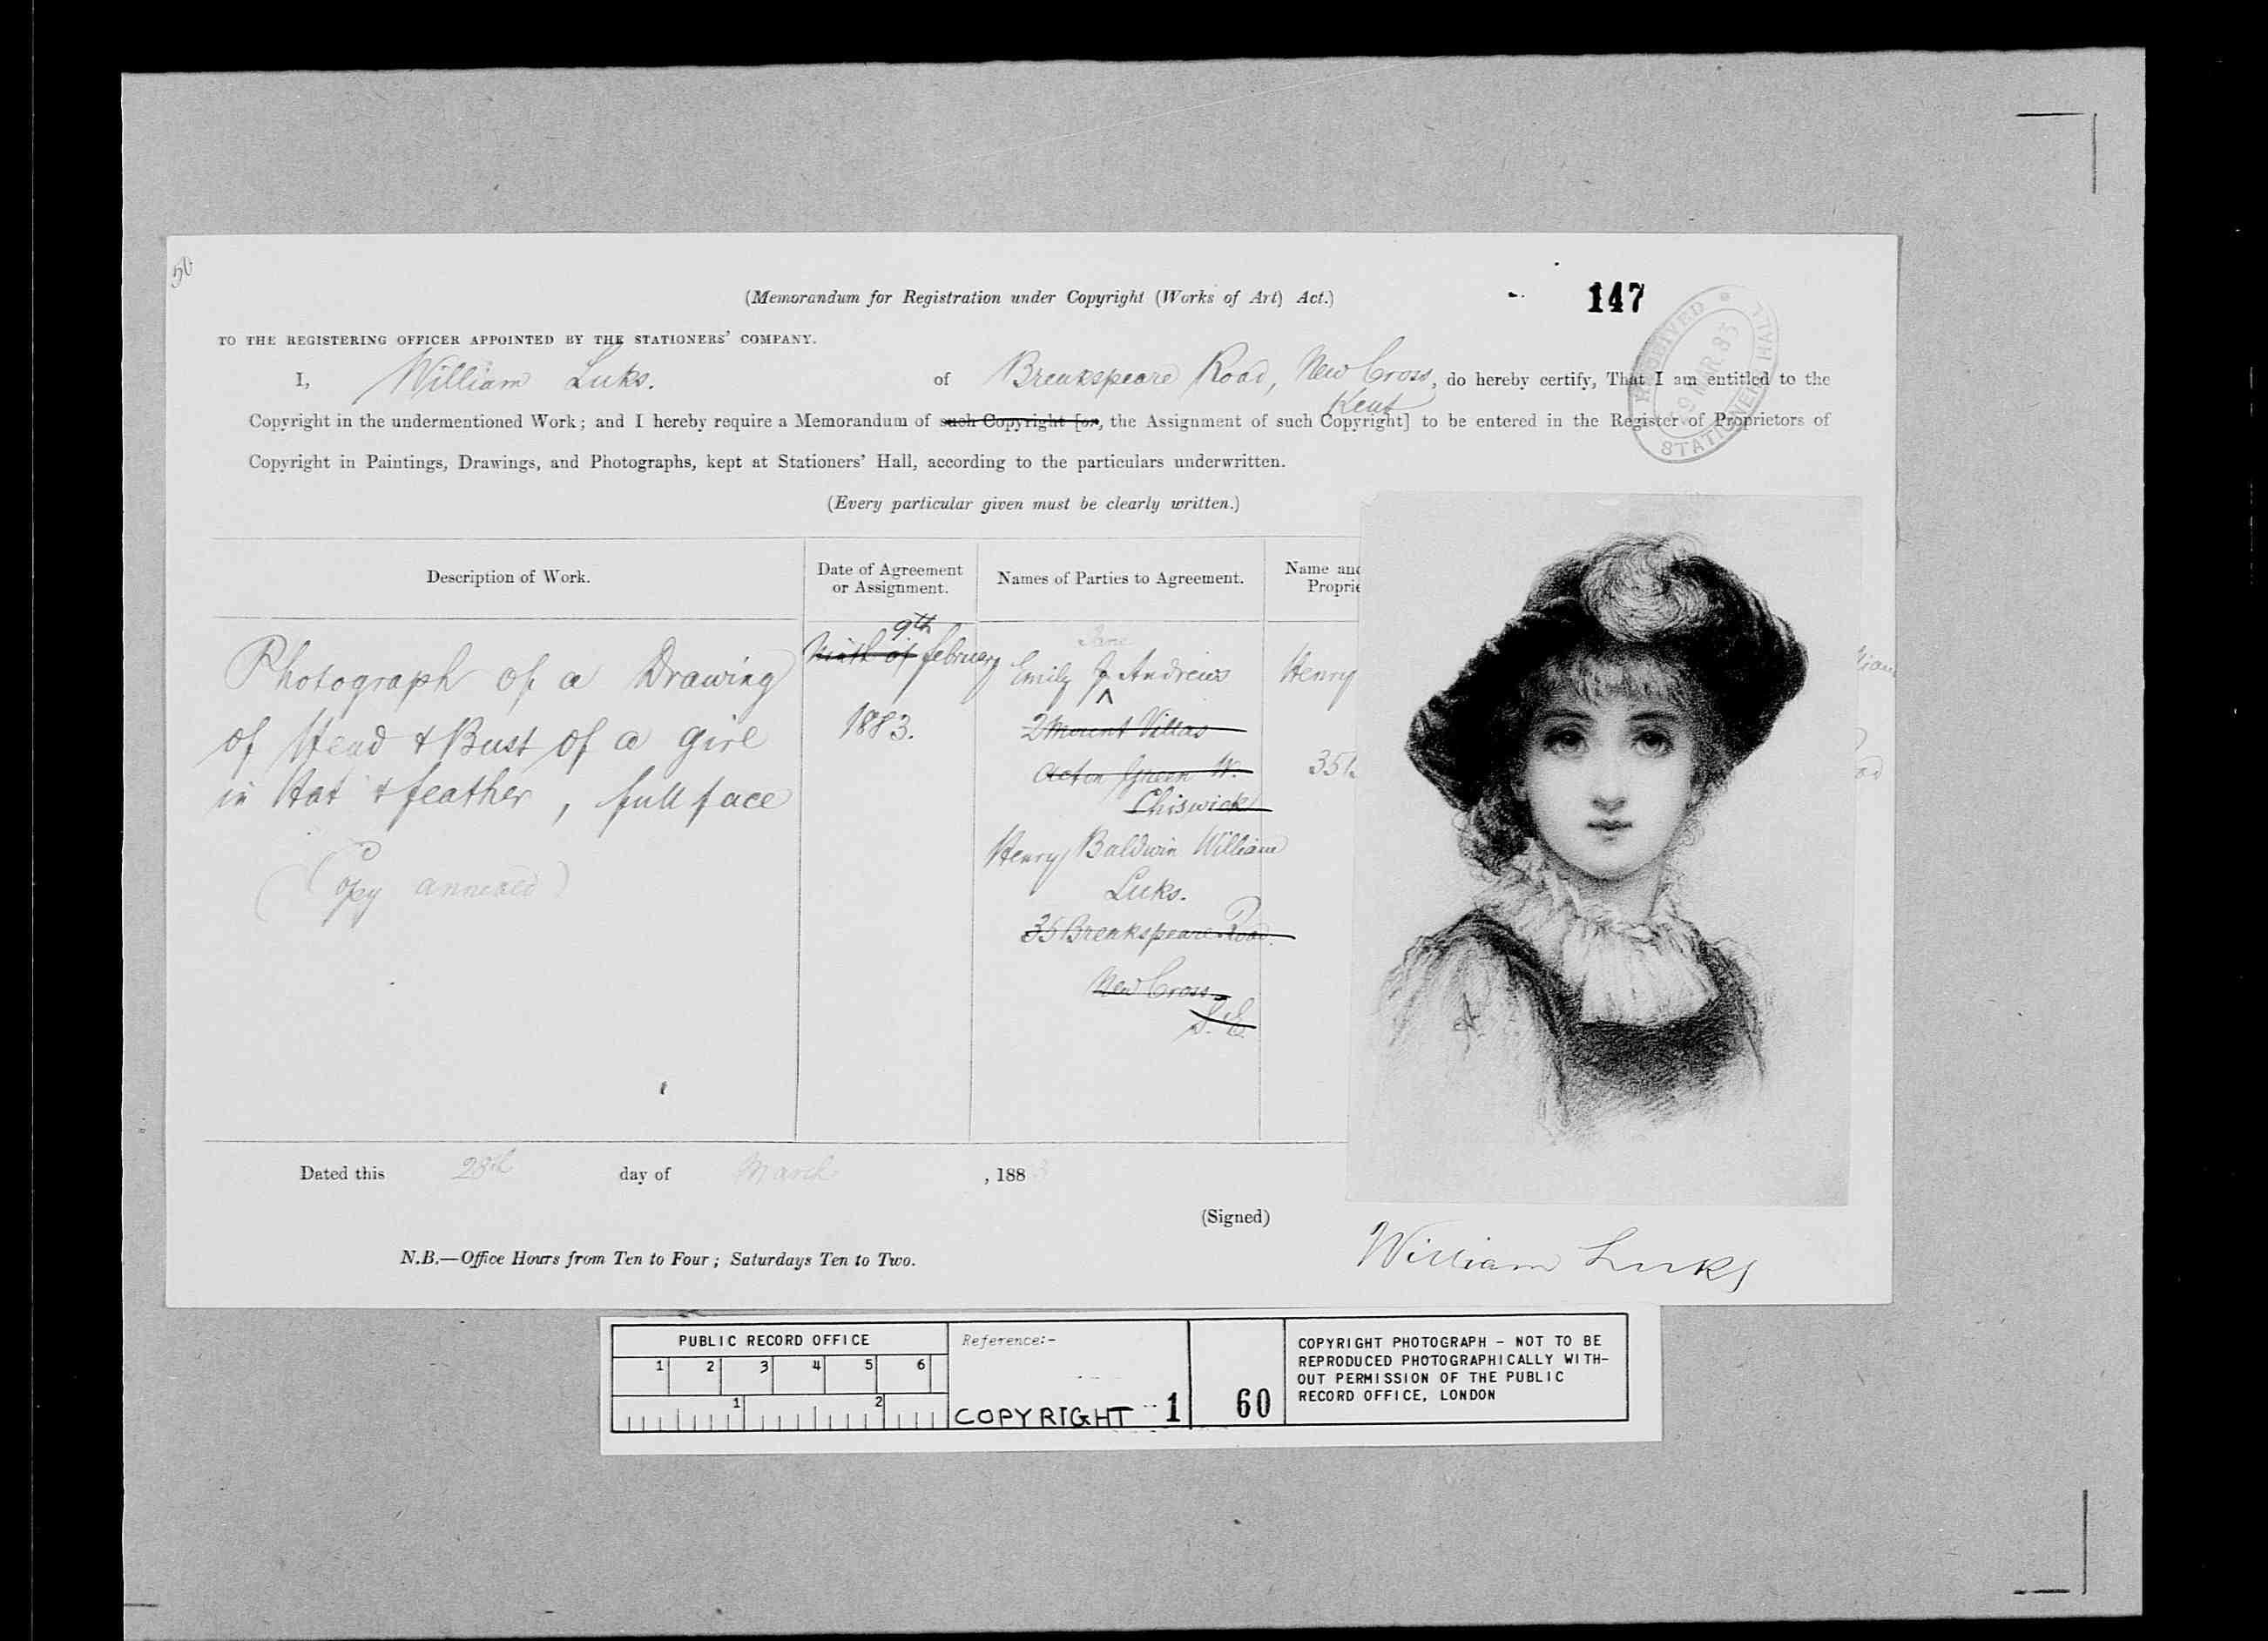 50
(Memorandum for Registration under Copyright (Works of Art) Act.)
147
RECEIVED
29 MAR. 83
STATIONERS' HALL
TO THE REGISTERING OFFICER APPOINTED BY THE STATIONERS' COMPANY.
I, William Luks. of Breakspeare Road, New Cross, do hereby certify, That I am entitled to the
Kent
Copyright in the undermentioned Work; and I hereby require a Memorandum of such Copyright [or, the Assignment of such Copyright] to be entered in the Register of Proprietors of
Copyright in Paintings, Drawings, and Photographs, kept at Stationers' Hall, according to the particulars underwritten.
(Every particular given must be clearly written.)
Description of Work.
Photograph of a Drawing
of Head & Bust of a girl
in Hat & feather, full face
(Copy annexed)
Date of Agreement
or Assignment.
9th
Ninth of february
1883.
Names of Parties to Agreement.
Jane
Emily J Andrews
2 Mount Villas
Acton Green W.
Chiswick
Henry Baldwin William
Luks.
35 Breakspeare Road.
New Cross
S.E.
Name and
Proprie
Henry
35
Dated this 28th day of March, 1883
(Signed)
William Luks
N.B.—Office Hours from Ten to Four; Saturdays Ten to Two.
PUBLIC RECORD OFFICE
1 2 3 4 5 6
1 2
Reference:-
COPYRIGHT 1
60
COPYRIGHT PHOTOGRAPH - NOT TO BE
REPRODUCED PHOTOGRAPHICALLY WITH-
OUT PERMISSION OF THE PUBLIC
RECORD OFFICE, LONDON